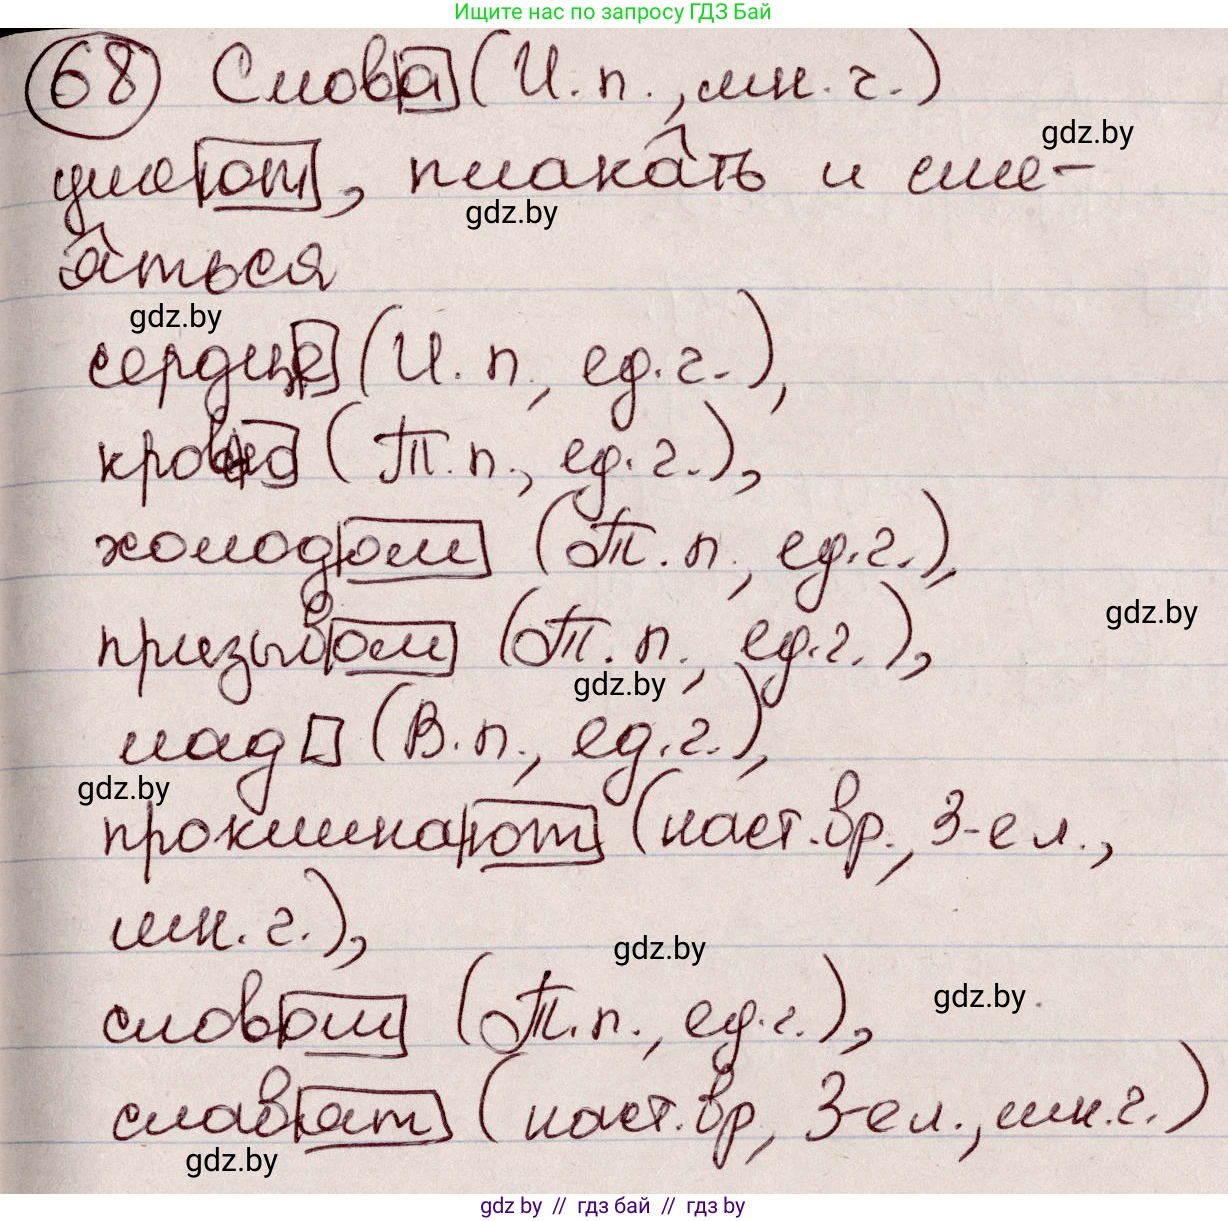 Ищите нас по запросу ГДЗ Бай
68 Слова (И.п., мн.ч.)
gdz.by
умеют, плакать и сме-
gdz.by
яться
gdz.by
сердце (И.п., ед.ч.),
(Т.п., ед.ч.),
холодом (Т.п., ед.ч.),
gdz.by
призывом (Т.п., ед.ч.),
gdz.by
(В.п., ед.ч.),
gdz.by
проклинают (наст.вр., 3-е л.,
мн.ч.),
gdz.by
gdz.by
словом (Т.п., ед.ч.),
славят (наст.вр, 3-е л., мн.ч.)
gdz.by
gdz.by // гдз бай // gdz.by